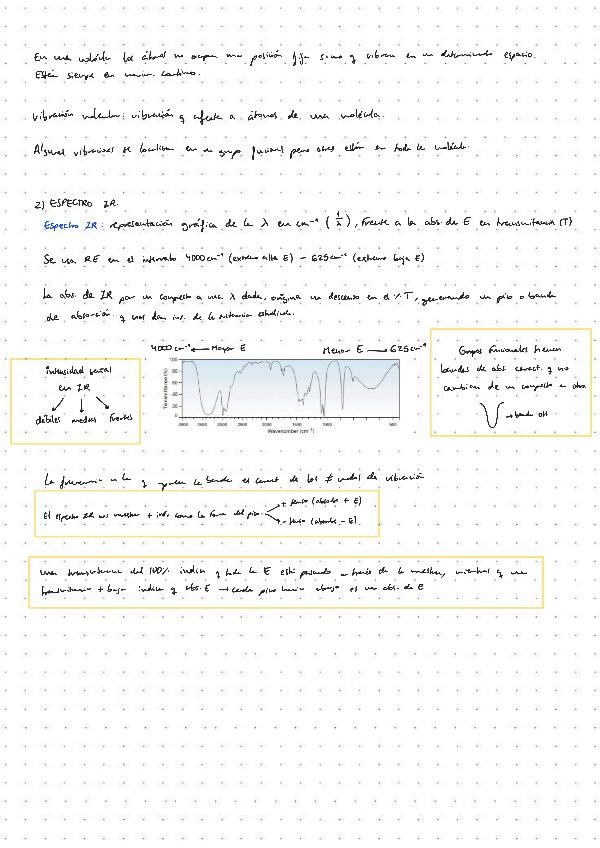 En una molécula los átomos no ocupan una posición fija sino q vibran en un determinado espacio.
Están siempre en mov. continuo.
Vibración molecular: vibración q afecta a átomos de una molécula.
Algunas vibraciones se localizan en un grupo funcional pero otras están en toda la molécula.
2) ESPECTRO IR.
Espectro IR: representación gráfica de la λ en cm⁻¹ (1/λ), frente a la abs. de E en transmitancia (T)
Se usa RE en el intervalo 4000 cm⁻¹ (extremo alta E) – 625 cm⁻¹ (extremo baja E)
La abs. de IR por un compuesto a una λ dada, origina un descenso en el % T, generando un pico o banda
de absorción q nos dan inf. de la sustancia estudiada.
4000 cm⁻¹ ← Mayor E
Menor E → 625 cm⁻¹
Intensidad
en IR
débiles medias fuertes
Transmittance (%)
100
80
60
40
20
0
4000 3500 3000 2500 2000 1500 1000 500
Wavenumber (cm⁻¹)
Grupos funcionales tienen
bandas de abs. caract. q no
cambian de un compuesto a otro
→ banda OH
La frecuencia a la q aparece la banda es caract. de los ≠ modos de vibración
El espectro IR nos muestra + inf. como la forma del pico
+ tenso (absorbe + E)
- tenso (absorbe - E)
una transmitancia del 100% indica q toda la E está pasando a través de la muestra, mientras q una
transmitancia + baja indica q abs. E → cada pico hacia abajo es un abs. de E